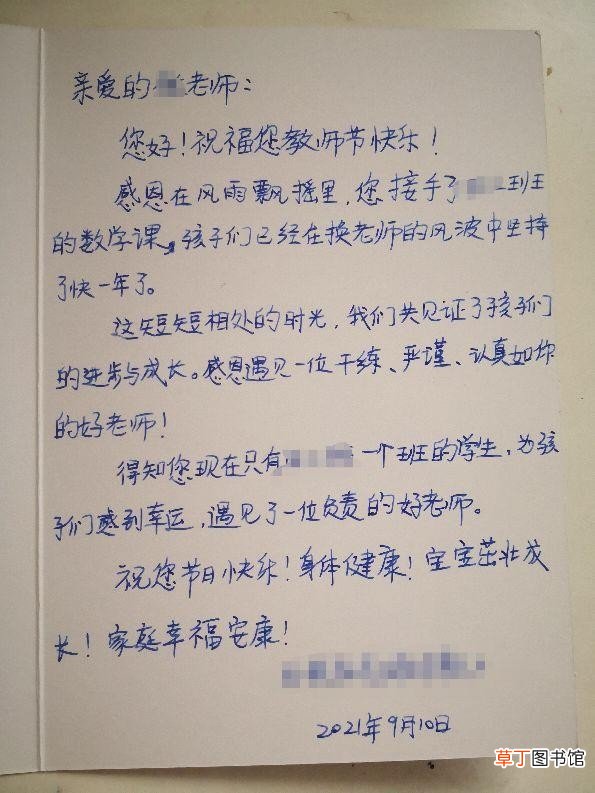 亲爱的 老师：
您好！祝福您教师节快乐！
感恩在风雨飘摇里，您接手了 班
的数学课，孩子们已经在换老师的风波中坚持
了快一年了。
这短短相处的时光，我们共见证了孩子们
的进步与成长。感恩遇见一位干练、严谨、认真如你
的好老师！
得知您现在只有 一个班的学生，为孩
子们感到幸运，遇见了一位负责的好老师。
祝您节日快乐！身体健康！宝宝茁壮成
长！家庭幸福安康！
2021年9月10日
草丁图书馆